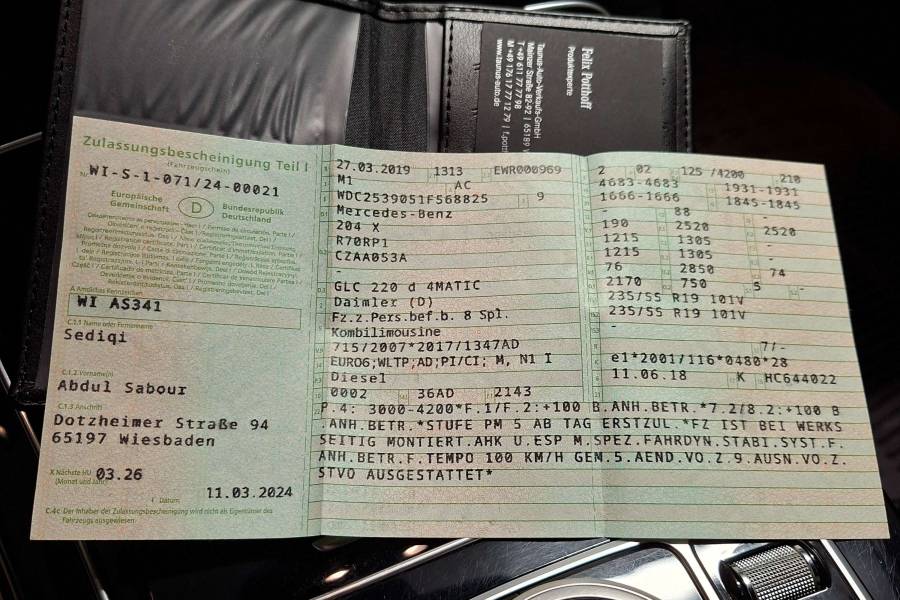 Felix Potthoff
Produktexperte
Taunus-Auto-Verkaufs-GmbH
Mainzer Straße 82-92 | 65189
T +49 611 77 77 98
M +49 176 17 77 12 79 |
www.taunus-auto.de
Zulassungsbescheinigung Teil I
(Fahrzeugschein)
Nr. WI-S-1-071/24-00021
Europäische Gemeinschaft D Bundesrepublik Deutschland
A Amtliches Kennzeichen
WI AS341
C.1.1 Name oder Firmenname
Sediqi
C.1.2 Vorname(n)
Abdul Sabour
C.1.3 Anschrift
Dotzheimer Straße 94
65197 Wiesbaden
X Nächste HU (Monat und Jahr) 03.26
I Datum: 11.03.2024
C.4c Der Inhaber der Zulassungsbescheinigung wird nicht als Eigentümer des
Fahrzeugs ausgewiesen.
27.03.2019 1313 EWR000969
M1 AC
WDC2539051F568825 9
Mercedes-Benz
204 X
R70RP1
CZAA053A
-
GLC 220 d 4MATIC
Daimler (D)
Fz.z.Pers.bef.b. 8 Spl.
Kombilimousine
715/2007*2017/1347AD
EURO6;WLTP;AD;PI/CI; M, N1 I
Diesel
0002 36AD 2143
2 02 125 /4200 210
4683-4683 1931-1931
1666-1666 1845-1845
- 88 -
190 2520 2520
1215 1305 -
1215 1305 -
76 2850 74
2170 750 5 -
235/55 R19 101V
235/55 R19 101V
-
7/-
e1*2001/116*0480*28
11.06.18 K HC644022
P.4: 3000-4200*F.1/F.2:+100 B.ANH.BETR.*7.2/8.2:+100 B
.ANH.BETR.*STUFE PM 5 AB TAG ERSTZUL.*FZ IST BEI WERKS
SEITIG MONTIERT.AHK U.ESP M.SPEZ.FAHRDYN.STABI.SYST.F.
ANH.BETR.F.TEMPO 100 KM/H GEM.5.AEND.VO.Z.9.AUSN.VO.Z.
STVO AUSGESTATTET*